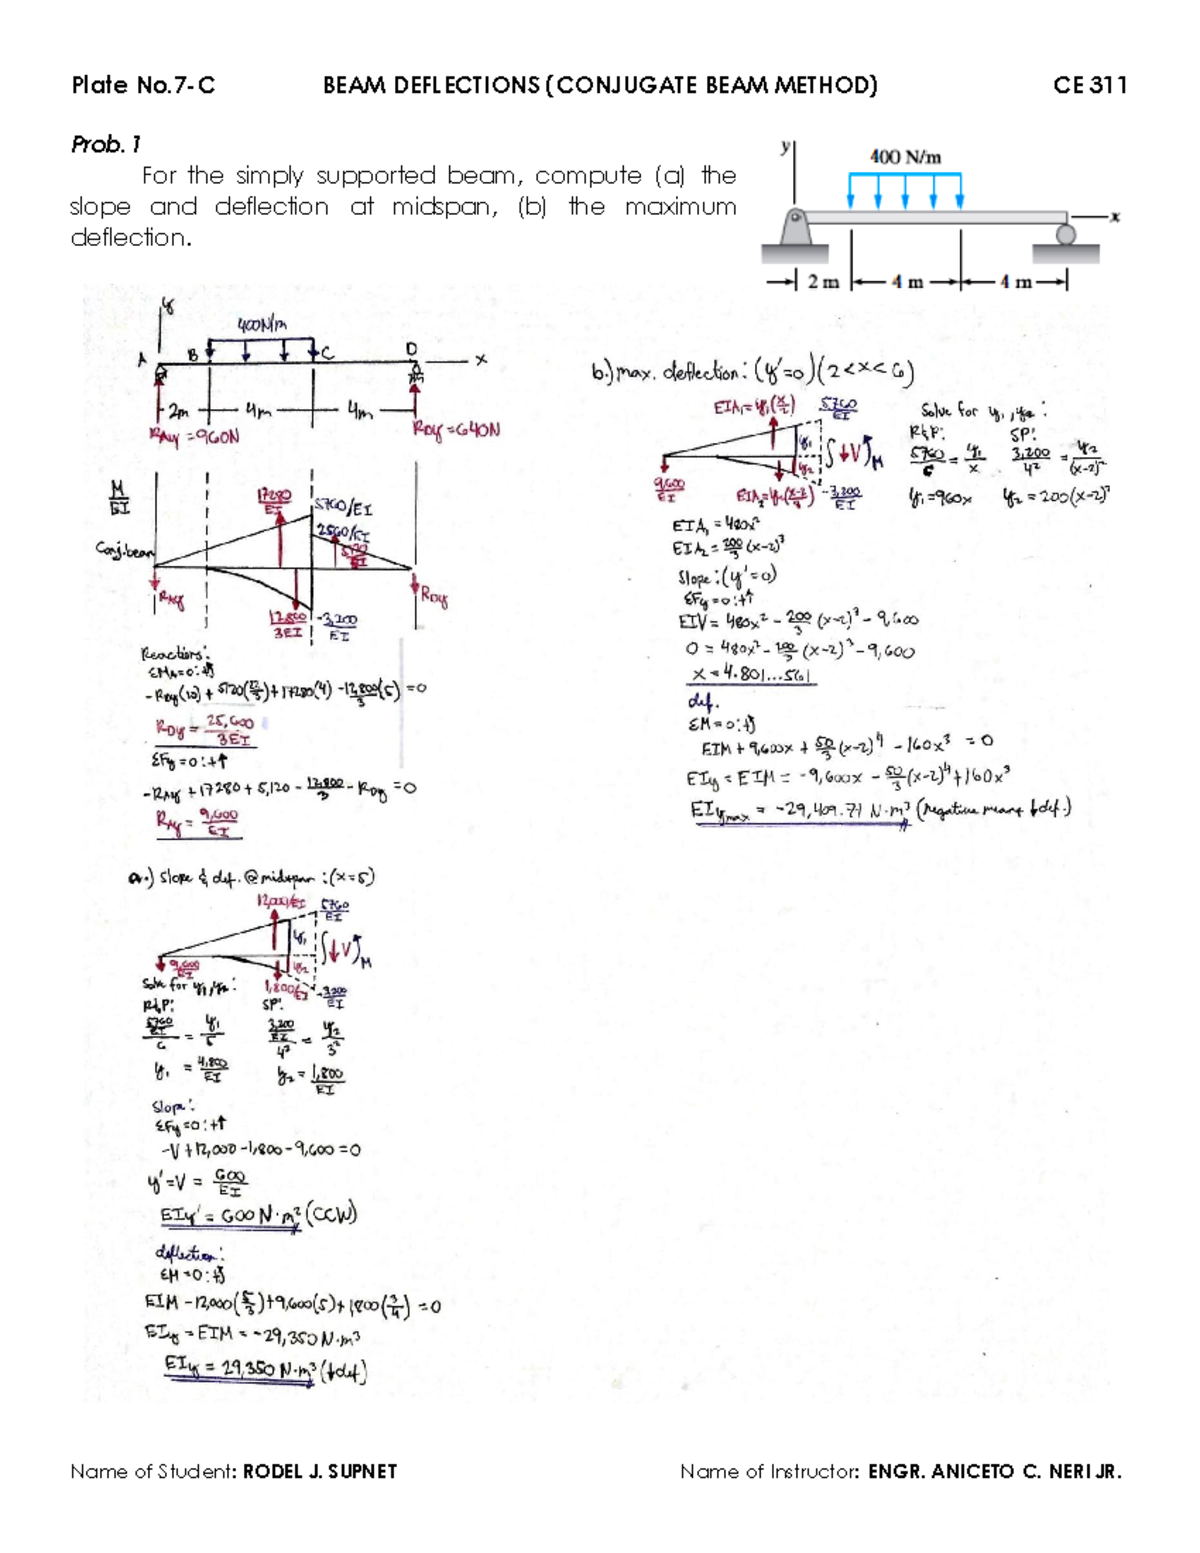 Plate No.7-C BEAM DEFLECTIONS (CONJUGATE BEAM METHOD) CE 311
Prob. 1
For the simply supported beam, compute (a) the
slope and deflection at midspan, (b) the maximum
deflection.
y
400 N/m
x
2 m 4 m 4 m
y
400N/m
A B C D x
2m 4m 4m
RAy = 960N RDy = 640N
M/EI
17280/EI 5760/EI
2560/EI
5120/EI
Conj. beam
RAy RDy
12800/3EI -3,200/EI
Reactions:
ΣMA=0:
-RDy(10) + 5120(22/3) + 17280(4) - 12,800/3(5) = 0
RDy = 25,600/3EI
ΣFy=0:+↑
-RAy + 17280 + 5,120 - 12,800/3 - RDy = 0
RAy = 9,600/EI
a.) Slope & def. @ midspan : (x=5)
12,000/EI 5760/EI
y1
V M
9,600/EI y2
1,800/EI -3200/EI
Solve for y1, y2 :
R&P: SP:
5760/EI/6 = y1/5 3,200/EI/4² = y2/3²
y1 = 4,800/EI y2 = 1,800/EI
Slope:
ΣFy=0:+↑
-V + 12,000 - 1,800 - 9,600 = 0
y' = V = 600/EI
EIy' = 600 N·m² (CCW)
deflection:
ΣM=0:
EIM - 12,000(5/3) + 9,600(5) + 1,800(3/4) = 0
EIy = EIM = -29,350 N·m³
EIy = 29,350 N·m³ (↓def)
b.) max. deflection : (y'=0)(2<x<6)
EIA1 = y1(x/2) 5760/EI
y1
V M
y2
9,600/EI -3,200/EI
Solve for y1, y2 :
R&P: SP:
5760/6 = y1/x 3,200/4² = y2/(x-2)²
y1 = 960x y2 = 200(x-2)²
EIA1 = 480x²
EIA2 = 200/3 (x-2)³
Slope : (y'=0)
ΣFy=0:+↑
EIV = 480x² - 200/3 (x-2)³ - 9,600
0 = 480x² - 200/3 (x-2)³ - 9,600
x = 4.801...561
def.
ΣM=0:
EIM + 9,600x + 50/3 (x-2)⁴ - 160x³ = 0
EIy = EIM = -9,600x - 50/3 (x-2)⁴ + 160x³
EIymax = -29,409.71 N·m³ (negative means ↓def.)
Name of Student: RODEL J. SUPNET Name of Instructor: ENGR. ANICETO C. NERI JR.